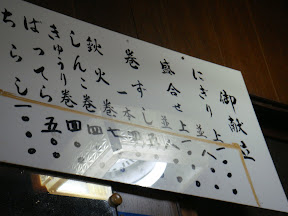 御献立
にぎり 並 一
上 一八
盛合せ 並
上
巻すし 一本
鉄火巻 七
しんこ巻 四
きゅうり巻 四
はってら 五
ちらし 一